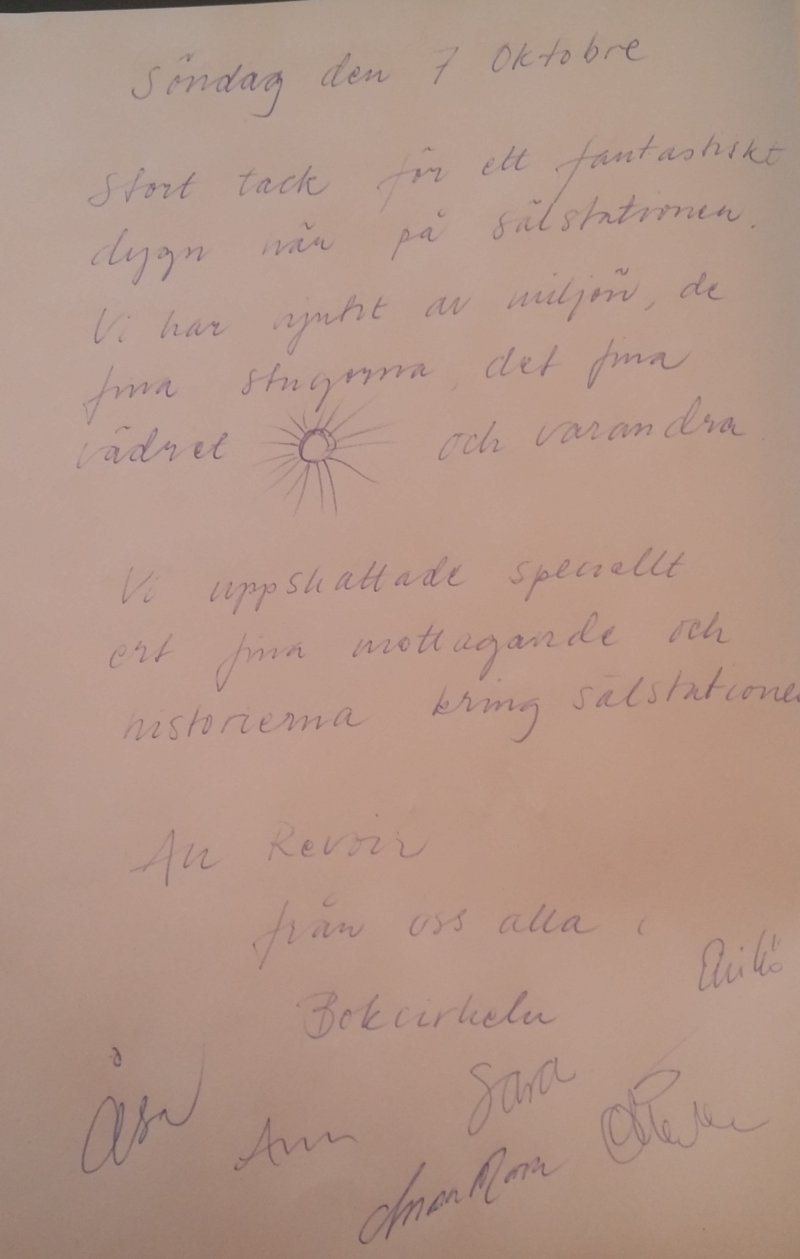 Söndag den 7 Oktobre
Stort tack för ett fantastiskt
dygn när på sälstationen.
Vi har njutit av miljön, de
fina stugorna, det fina
vädret och varandra
Vi uppskattade speciellt
ert fina mottagande och
historierna kring sälstationen
Au Revoir
från oss alla i
Bokcirkeln
Åsa
Ann
Sara